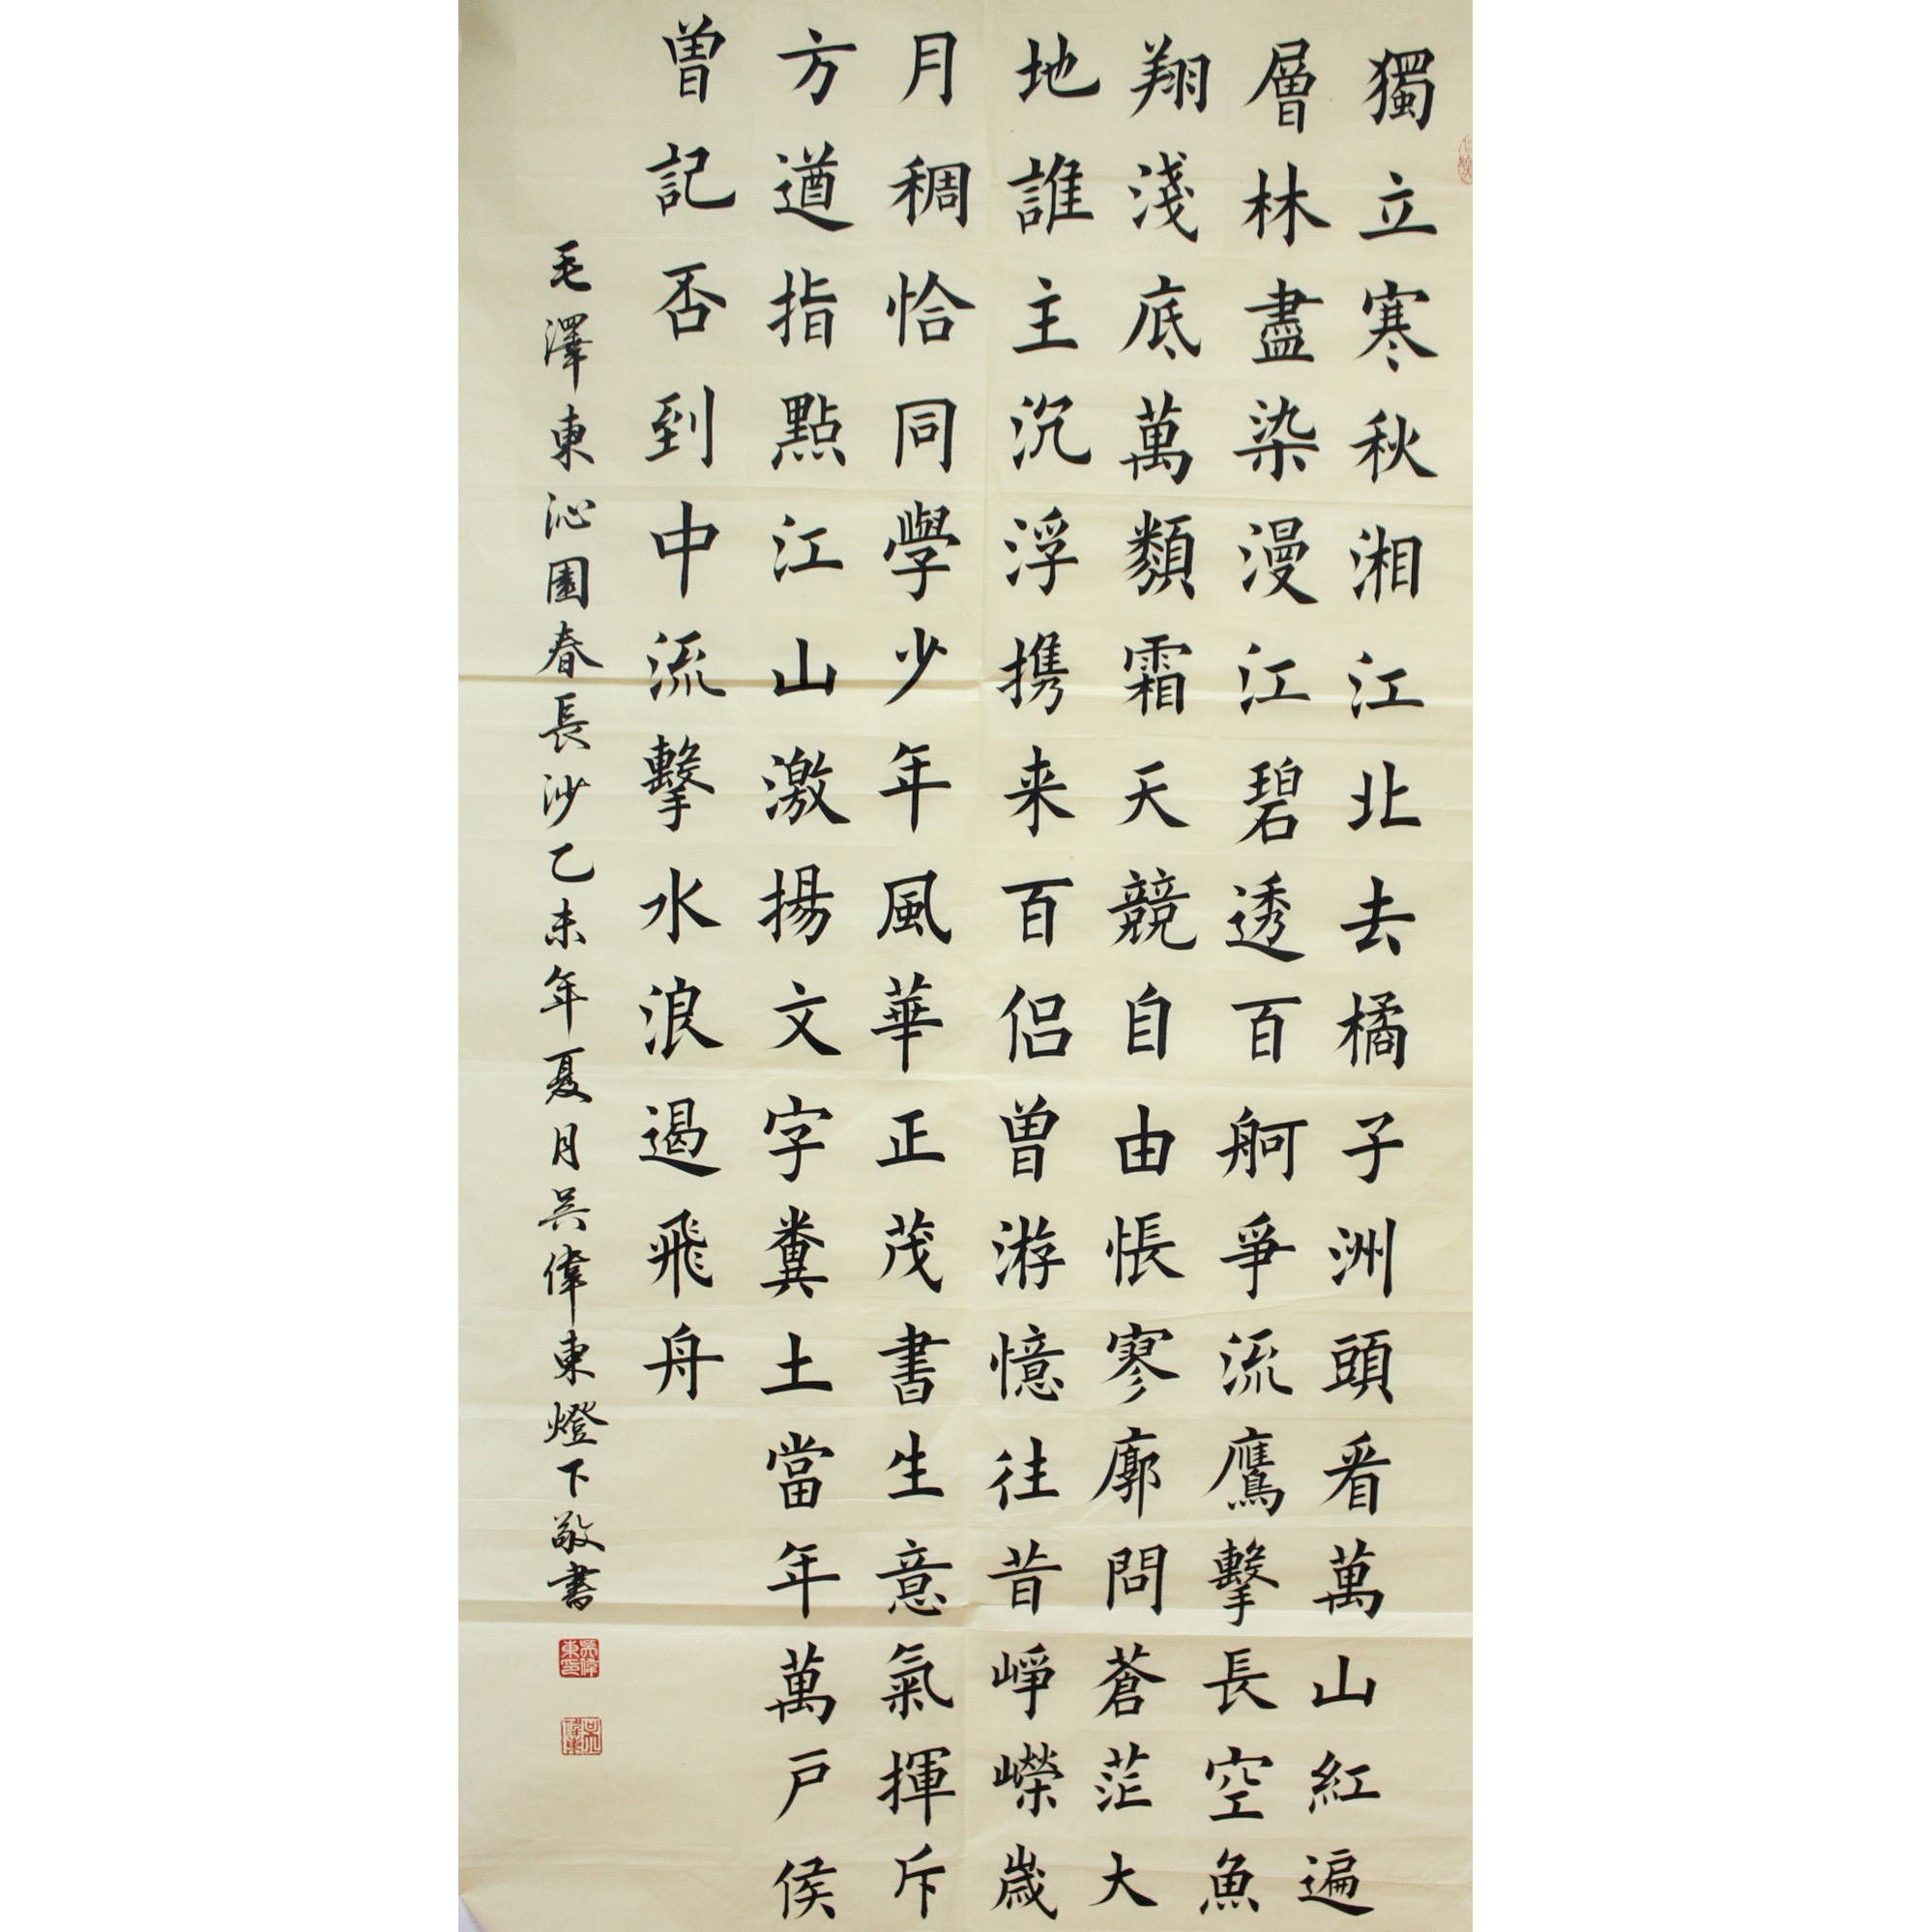 獨立寒秋湘江北去橘子洲頭看萬山紅遍
層林盡染漫江碧透百舸爭流鷹擊長空魚
翔淺底萬類霜天競自由悵寥廓問蒼茫大
地誰主沉浮携来百侣曾游憶往昔崢嶸歲
月稠恰同學少年風華正茂書生意氣揮斥
方遒指點江山激揚文字糞土當年萬户侯
曾記否到中流擊水浪遏飛舟
毛澤東沁園春長沙乙未年夏月吳偉東燈下敬書
吳偉東印
吳偉東